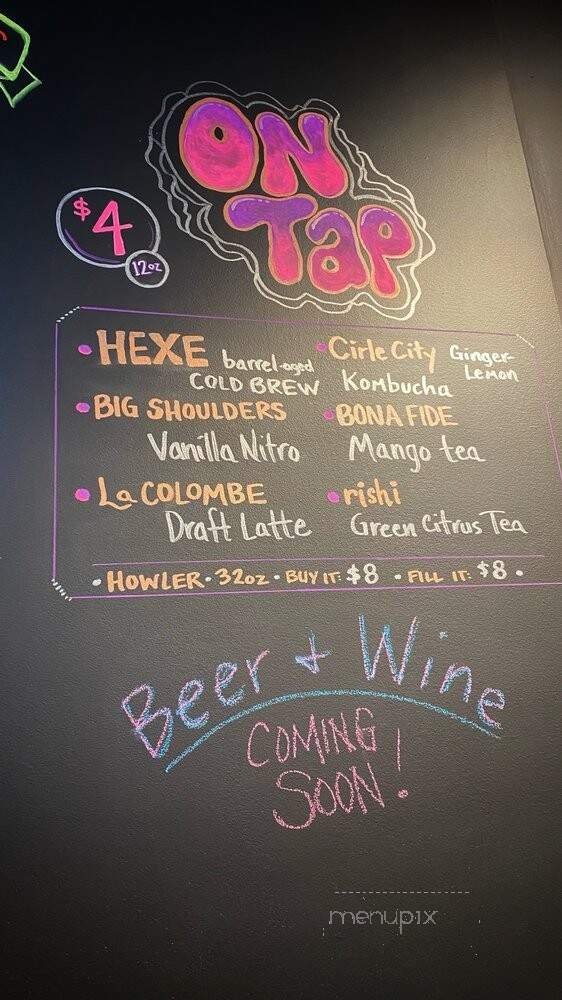 ON
TAP
$4
12oz
• HEXE barrel-aged
COLD BREW
• BIG SHOULDERS
Vanilla Nitro
• La COLOMBE
Draft Latte
• Cirle City Ginger-
Lemon
Kombucha
• BONA FIDE
Mango tea
• rishi
Green Citrus Tea
• HOWLER • 32oz • BUY IT: $8 • FILL IT: $8 •
Beer + Wine
COMING
SOON!
menupix